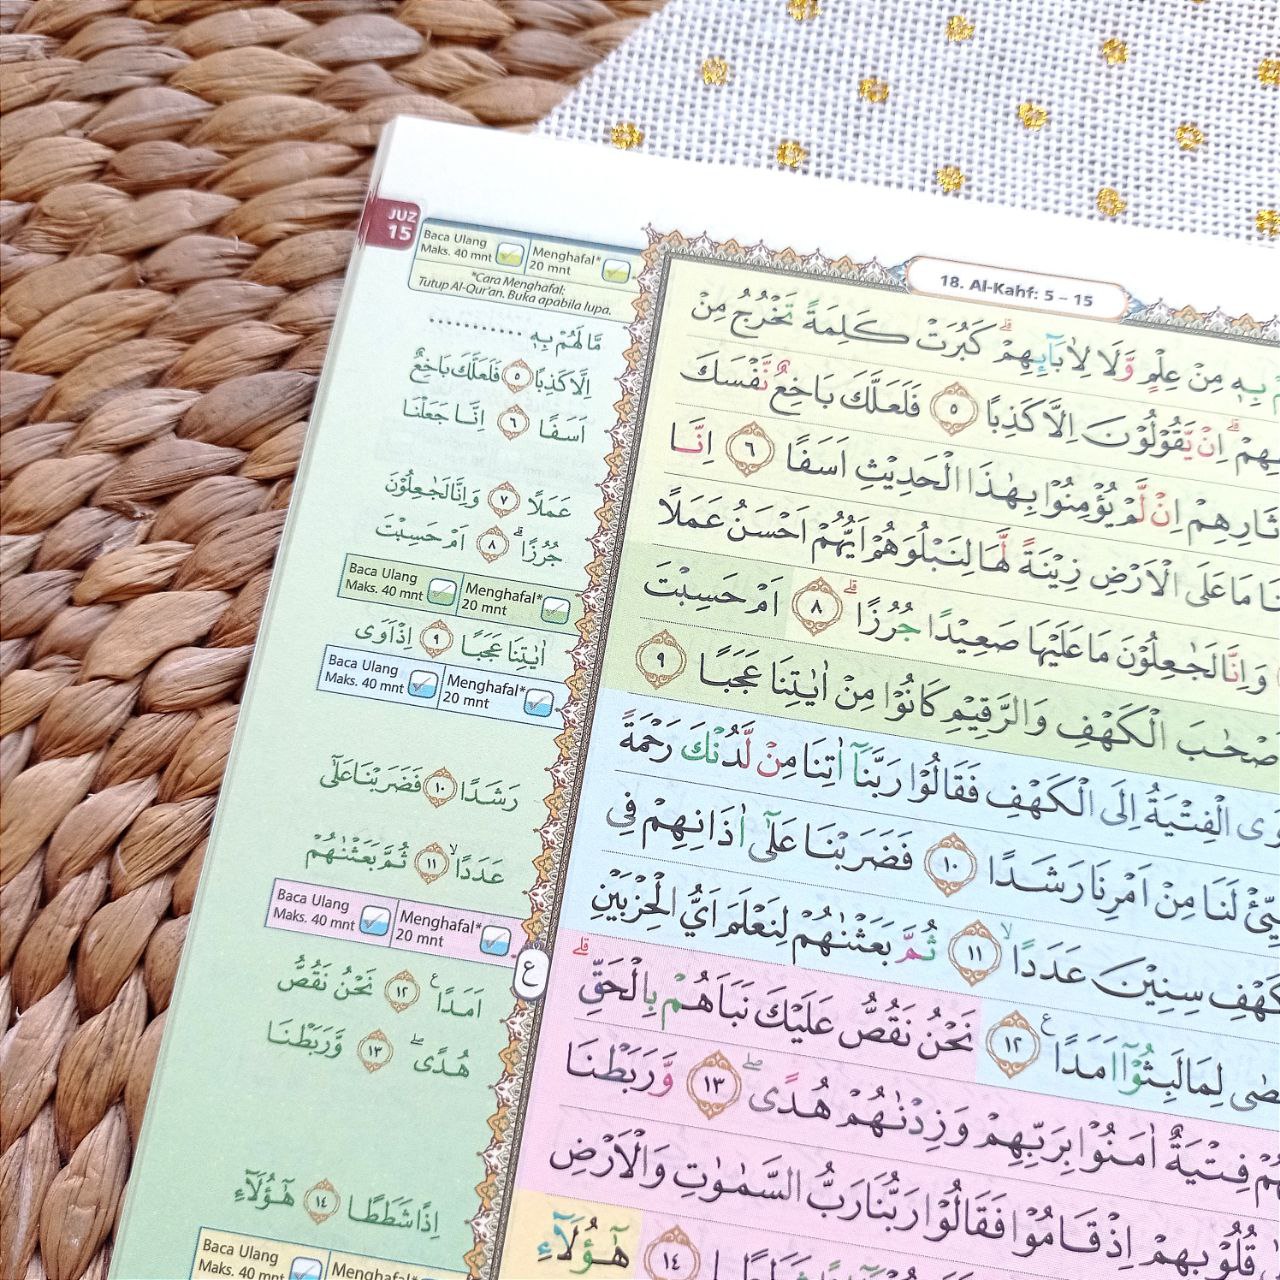 JUZ
15
Baca Ulang
Maks. 40 mnt
Menghafal*
20 mnt
*Cara Menghafal:
Tutup Al-Qur'an. Buka apabila lupa.
18. Al-Kahf: 5 – 15
مَّا لَهُمْ بِهٖ ............
اِلَّا كَذِبًا ٥ فَلَعَلَّكَ بَاخِعٌ
اَسَفًا ٦ اِنَّا جَعَلْنَا
عَمَلًا ٧ وَاِنَّا لَجٰعِلُوْنَ
جُرُزًاۗ ٨ اَمْ حَسِبْتَ
Baca Ulang
Maks. 40 mnt
Menghafal*
20 mnt
اٰيٰتِنَا عَجَبًا ٩ اِذْ اَوَى
Baca Ulang
Maks. 40 mnt
Menghafal*
20 mnt
رَشَدًا ١٠ فَضَرَبْنَا عَلٰٓى
عَدَدًاۙ ١١ ثُمَّ بَعَثْنٰهُمْ
Baca Ulang
Maks. 40 mnt
Menghafal*
20 mnt
ع
اَمَدًا ࣖ ١٢ نَحْنُ نَقُصُّ
هُدًىۖ ١٣ وَّرَبَطْنَا
اِذًا شَطَطًا ١٤ هٰٓؤُلَاۤءِ
Baca Ulang
Maks. 40 mnt
Menghafal*
بِهٖ مِنْ عِلْمٍ وَّلَا لِاٰبَاۤىِٕهِمْۗ كَبُرَتْ كَلِمَةً تَخْرُجُ مِنْ
اِنْ يَّقُوْلُوْنَ اِلَّا كَذِبًا ٥ فَلَعَلَّكَ بَاخِعٌ نَّفْسَكَ
ثَارِهِمْ اِنْ لَّمْ يُؤْمِنُوْا بِهٰذَا الْحَدِيْثِ اَسَفًا ٦ اِنَّا
نَا مَا عَلَى الْاَرْضِ زِيْنَةً لَّهَا لِنَبْلُوَهُمْ اَيُّهُمْ اَحْسَنُ عَمَلًا
وَاِنَّا لَجٰعِلُوْنَ مَا عَلَيْهَا صَعِيْدًا جُرُزًاۗ ٨ اَمْ حَسِبْتَ
صْحٰبَ الْكَهْفِ وَالرَّقِيْمِ كَانُوْا مِنْ اٰيٰتِنَا عَجَبًا ٩
وَى الْفِتْيَةُ اِلَى الْكَهْفِ فَقَالُوْا رَبَّنَآ اٰتِنَا مِنْ لَّدُنْكَ رَحْمَةً
يِّئْ لَنَا مِنْ اَمْرِنَا رَشَدًا ١٠ فَضَرَبْنَا عَلٰٓى اٰذَانِهِمْ فِى
كَهْفِ سِنِيْنَ عَدَدًاۙ ١١ ثُمَّ بَعَثْنٰهُمْ لِنَعْلَمَ اَيُّ الْحِزْبَيْنِ
صٰى لِمَا لَبِثُوْٓا اَمَدًا ࣖ ١٢ نَحْنُ نَقُصُّ عَلَيْكَ نَبَاَهُمْ بِالْحَقِّۗ
هُمْ فِتْيَةٌ اٰمَنُوْا بِرَبِّهِمْ وَزِدْنٰهُمْ هُدًىۖ ١٣ وَّرَبَطْنَا
قُلُوْبِهِمْ اِذْ قَامُوْا فَقَالُوْا رَبُّنَا رَبُّ السَّمٰوٰتِ وَالْاَرْضِ
شَطَطًا ١٤ هٰٓؤُلَاۤءِ